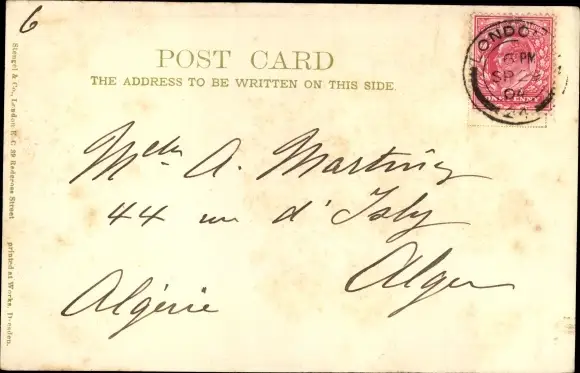 6
POST CARD
THE ADDRESS TO BE WRITTEN ON THIS SIDE.
LONDON
6 PM
SP
04
24
ONE PENNY
Melle A. Martinez
44 rue d'Isly
Alger
Algérie
Stengel & Co., London E. C. 39 Redcross Street printed at Works, Dresden.